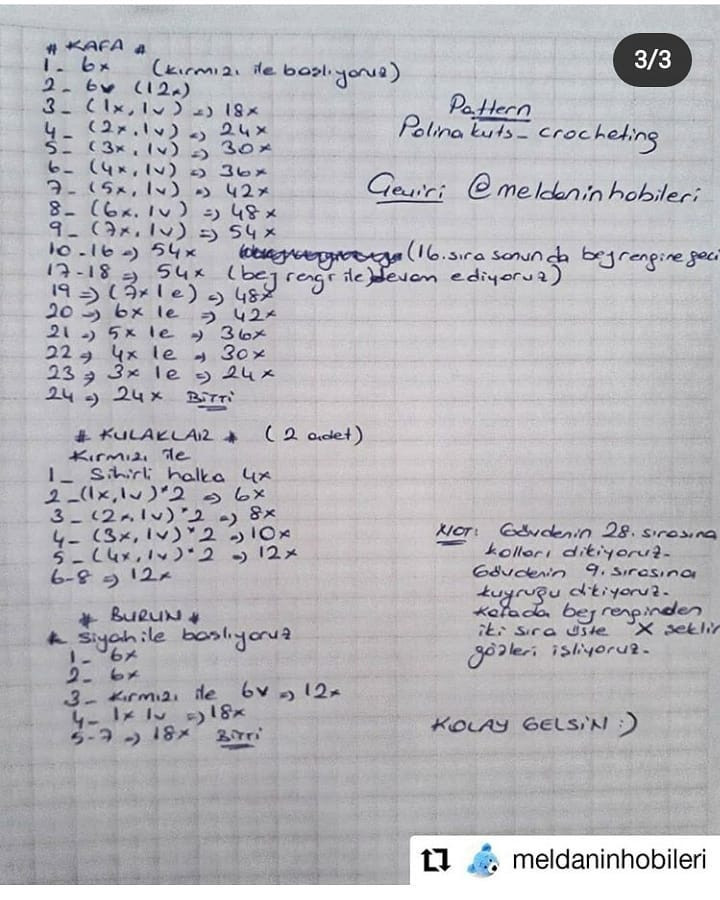 3/3
# KAFA #
1- 6x (kırmızı ile başlıyoruz)
2- 6v (12x)
3- (1x, 1v) => 18x
4- (2x, 1v) => 24x
5- (3x, 1v) => 30x
6- (4x, 1v) => 36x
7- (5x, 1v) => 42x
8- (6x, 1v) => 48x
9- (7x, 1v) => 54x
10-16 => 54x (16. sıra sonunda bej rengine geçi
17-18 => 54x (bej rengi ile) devam ediyoruz)
19 => (7x 1e) => 48x
20 => 6x 1e => 42x
21 => 5x 1e => 36x
22 => 4x 1e => 30x
23 => 3x 1e => 24x
24 => 24x BİTTİ
Pattern
Polina kuts_crocheting
Çeviri @meldaninhobileri
# KULAKLAR # (2 adet)
Kırmızı ile
1- Sihirli halka 4x
2-(1x, 1v)*2 => 6x
3- (2x, 1v)*2 => 8x
4- (3x, 1v)*2 => 10x
5- (4x, 1v)*2 => 12x
6-8 => 12x
# BURUN #
* Siyah ile başlıyoruz
1- 6x
2- 6x
3- Kırmızı ile 6v => 12x
4- 1x 1v => 18x
5-7 => 18x BİTTİ
NOT: Gövdenin 28. sırasına
kolları dikiyoruz.
Gövdenin 9. sırasına
kuyruğu dikiyoruz.
Kafada bej renginden
iki sıra üste X şeklin
gözleri işliyoruz.
KOLAY GELSİN :)
meldaninhobileri